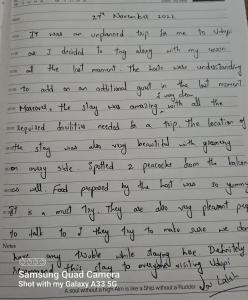 27th November 2022
It was an unplanned trip for me to Udupi
as I decided to tag along with my cousin
at the last moment. The hosts were understanding
to add on an additional guest in the last moment.
& very clean
Moreover, the stay was amazing, with all the
required facilities needed for a trip. The location of
the stay was also very beautiful with greenery
on every side. Spotted 2 peacocks from the balcony
as well. Food prepared by the host was so yummy
It is a must try. They are also very pleasant people
to talk to & they try to make sure we don't
Notes
have any trouble while staying here. Definitely
Recommend this stay to everyone visiting Udupi
A soul without a high Aim is like a Ship without a Rudder
Samsung Quad Camera
Shot with my Galaxy A33 5G